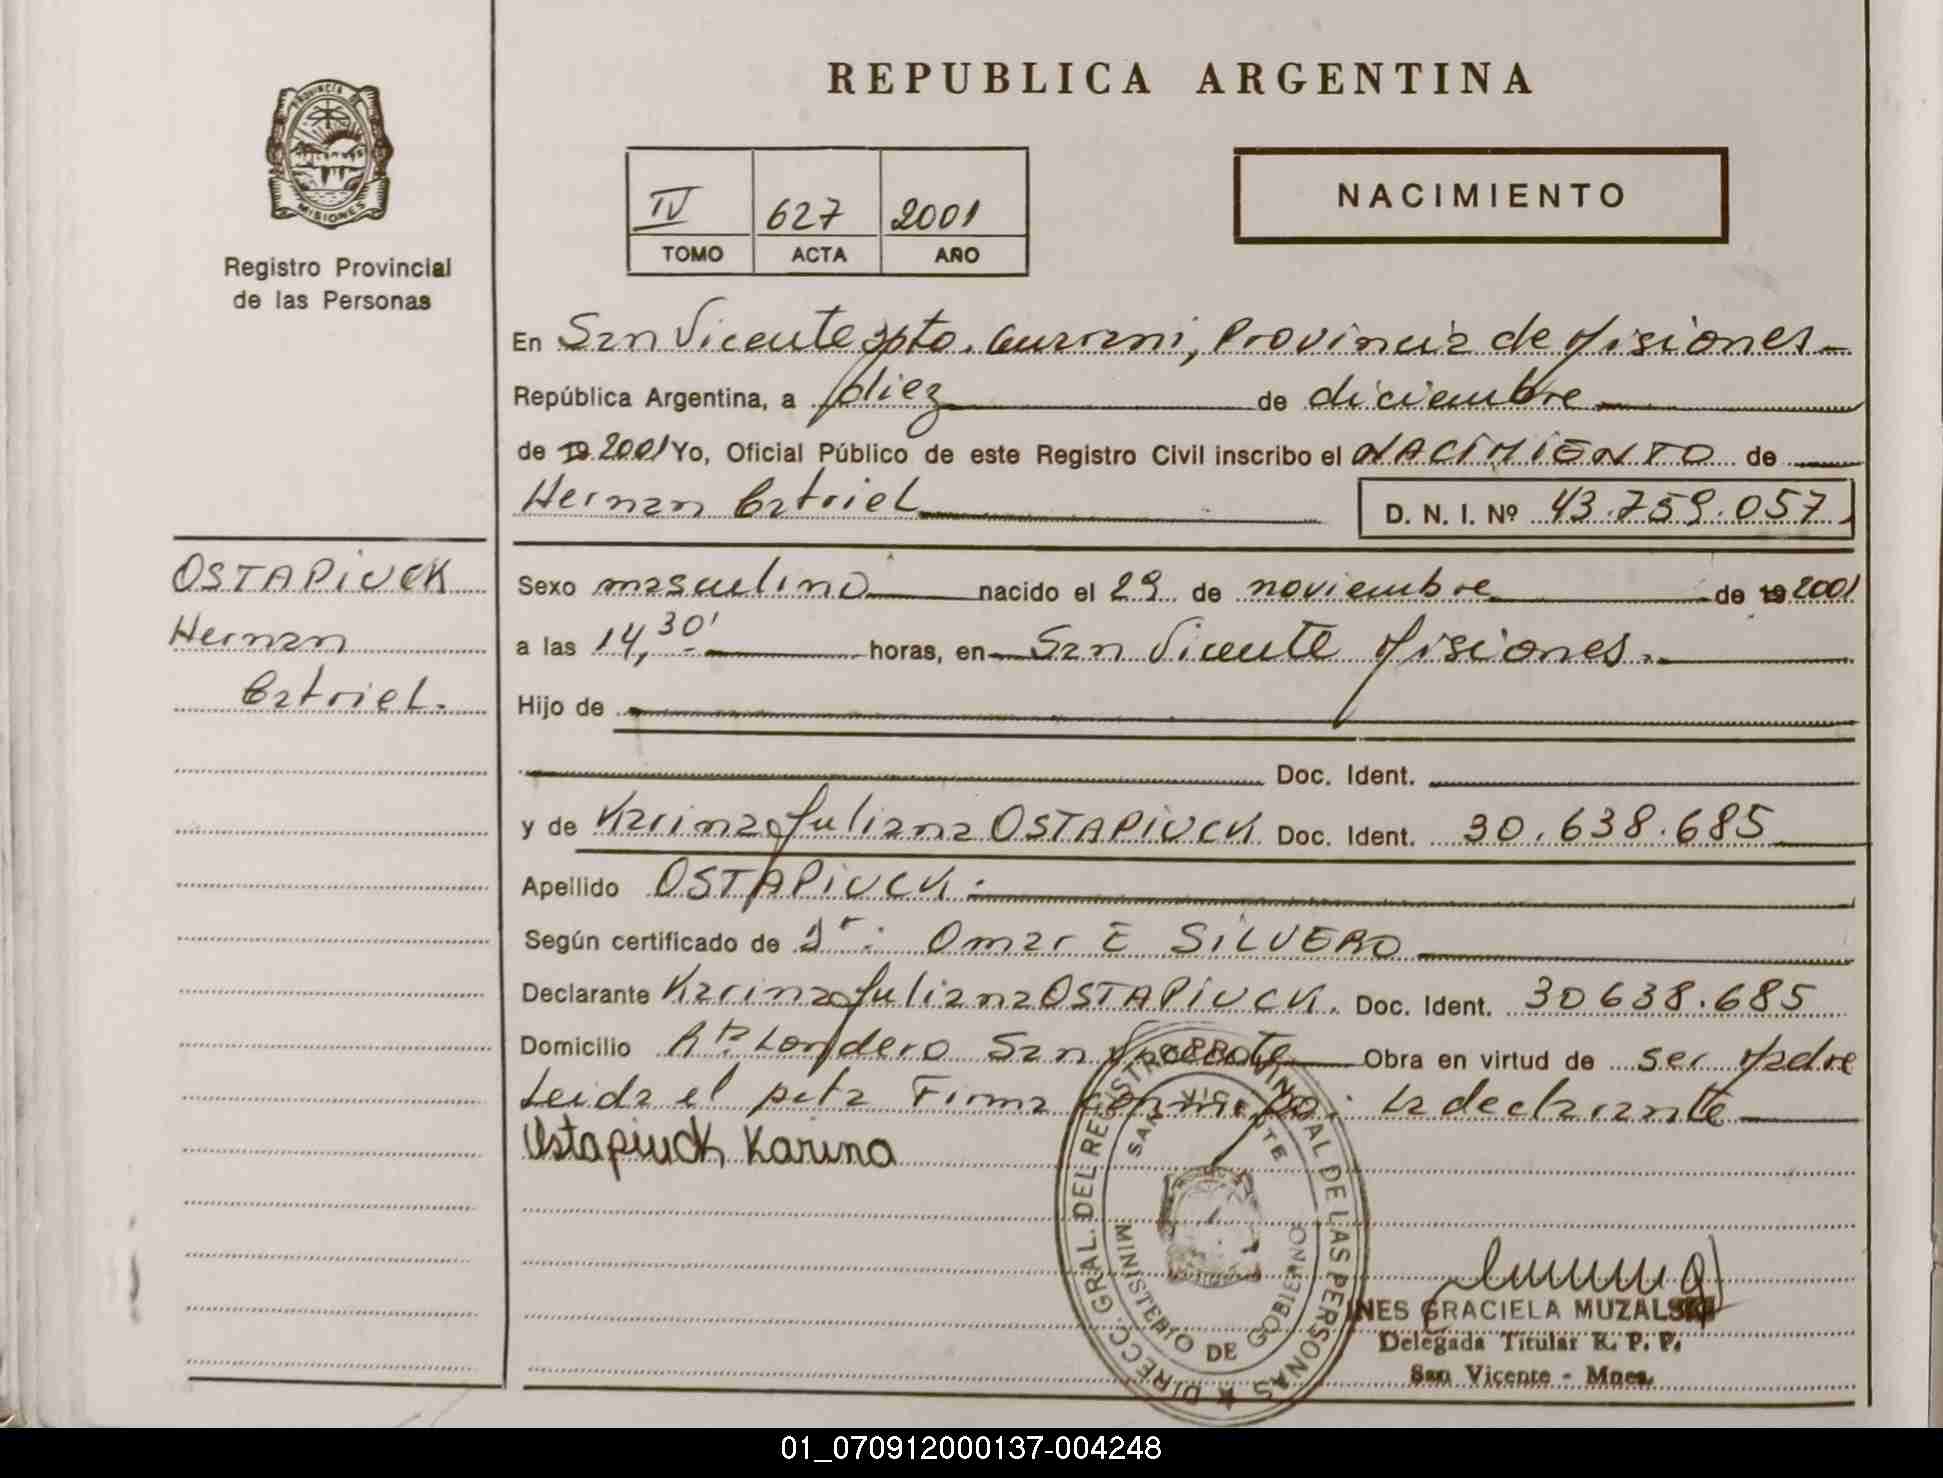 REPUBLICA ARGENTINA
PROVINCIA DE
MISIONES
Registro Provincial
de las Personas
IV 627 2001
TOMO ACTA AÑO
NACIMIENTO
En San Vicente Dpto. Guarani, Provincia de Misiones
República Argentina, a diez de diciembre
de 19 2001 Yo, Oficial Público de este Registro Civil inscribo el NACIMIENTO de
Hernan Catriel D. N. I. Nº 43.759.057
OSTAPIUCK
Hernan
Catriel.
Sexo masculino nacido el 29 de noviembre de 19 2001
a las 14,30' horas, en San Vicente Misiones.
Hijo de
Doc. Ident.
y de Karina Juliana OSTAPIUCK Doc. Ident. 30.638.685
Apellido OSTAPIUCK.
Según certificado de Dr: Omar E SILVERO
Declarante Karina Juliana OSTAPIUCK. Doc. Ident. 30638.685
Domicilio Londero San Vicente Obra en virtud de ser Madre
Leida el acta Firma conmigo: La declarante
Ostapiuck Karina
DIRECC. GRAL. DEL REGISTRO PROVINCIAL DE LAS PERSONAS
SAN VICENTE
MINISTERIO DE GOBIERNO
INES GRACIELA MUZALSKI
Delegada Titular R. P. P.
San Vicente - Mnes.
01_070912000137-004248